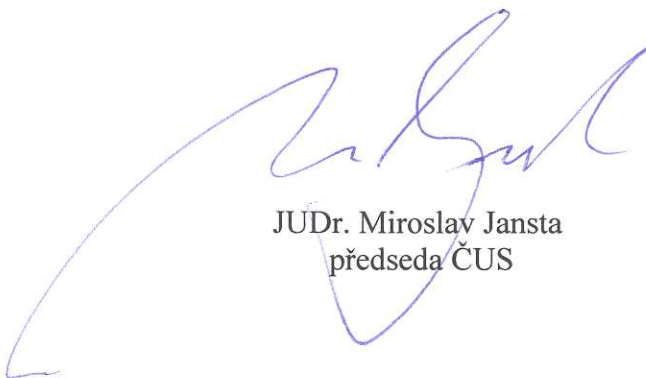 JUDr. Miroslav Jansta
předseda ČUS